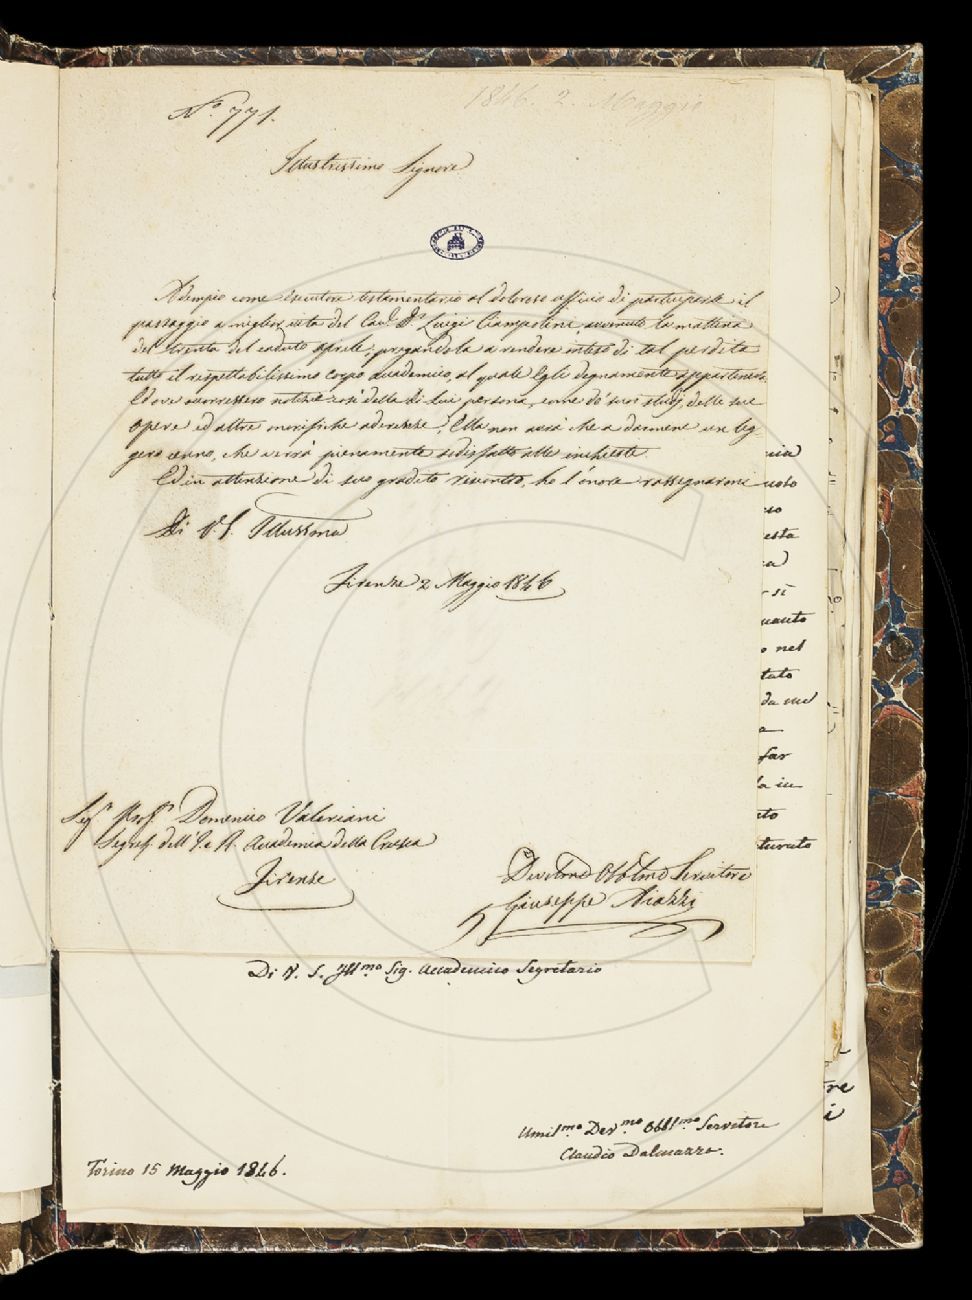 N.° 771.
1846. 2. Maggio
Illustrissimo Signore
Adempio come Esecutore testamentario al doloroso officio di partecipare il
passaggio a miglior vita del Cav.e D.r Luigi Ciampolini, avvenuto la mattina
del trenta del caduto aprile; pregandola a rendere inteso di tal perdita
tutto il rispettabilissimo corpo accademico, al quale Egli degnamente apparteneva.
Ed ove occorressero notizie così della di Lui persona, come de' suoi studj, delle sue
opere ed altre onorifiche aderenze, Ella non avrà che a darmene un leg-
gero cenno, che verrà pienamente sodisfatto alle inchieste.
Ed in attenzione di suo gradito riscontro, ho l'onore rassegnarmi
Di V. S. Illussma
Firenze 2 Maggio 1846
Sig.r Prof.r Domenico Valeriani
Segret. dell' I. e R. Accademia della Crusca
Firenze
Devotmo Obbtmo Servitore
Giuseppe Aiazzi
Di V. S. Ill.mo Sig. Accademico Segretario
Umil.mo Dev.mo Obbl.mo Servitore
Claudio Dalmazzo.
Torino 15 Maggio 1846.
uoso
esta
si
uanto
nel
tato
da me
far
la in
turato